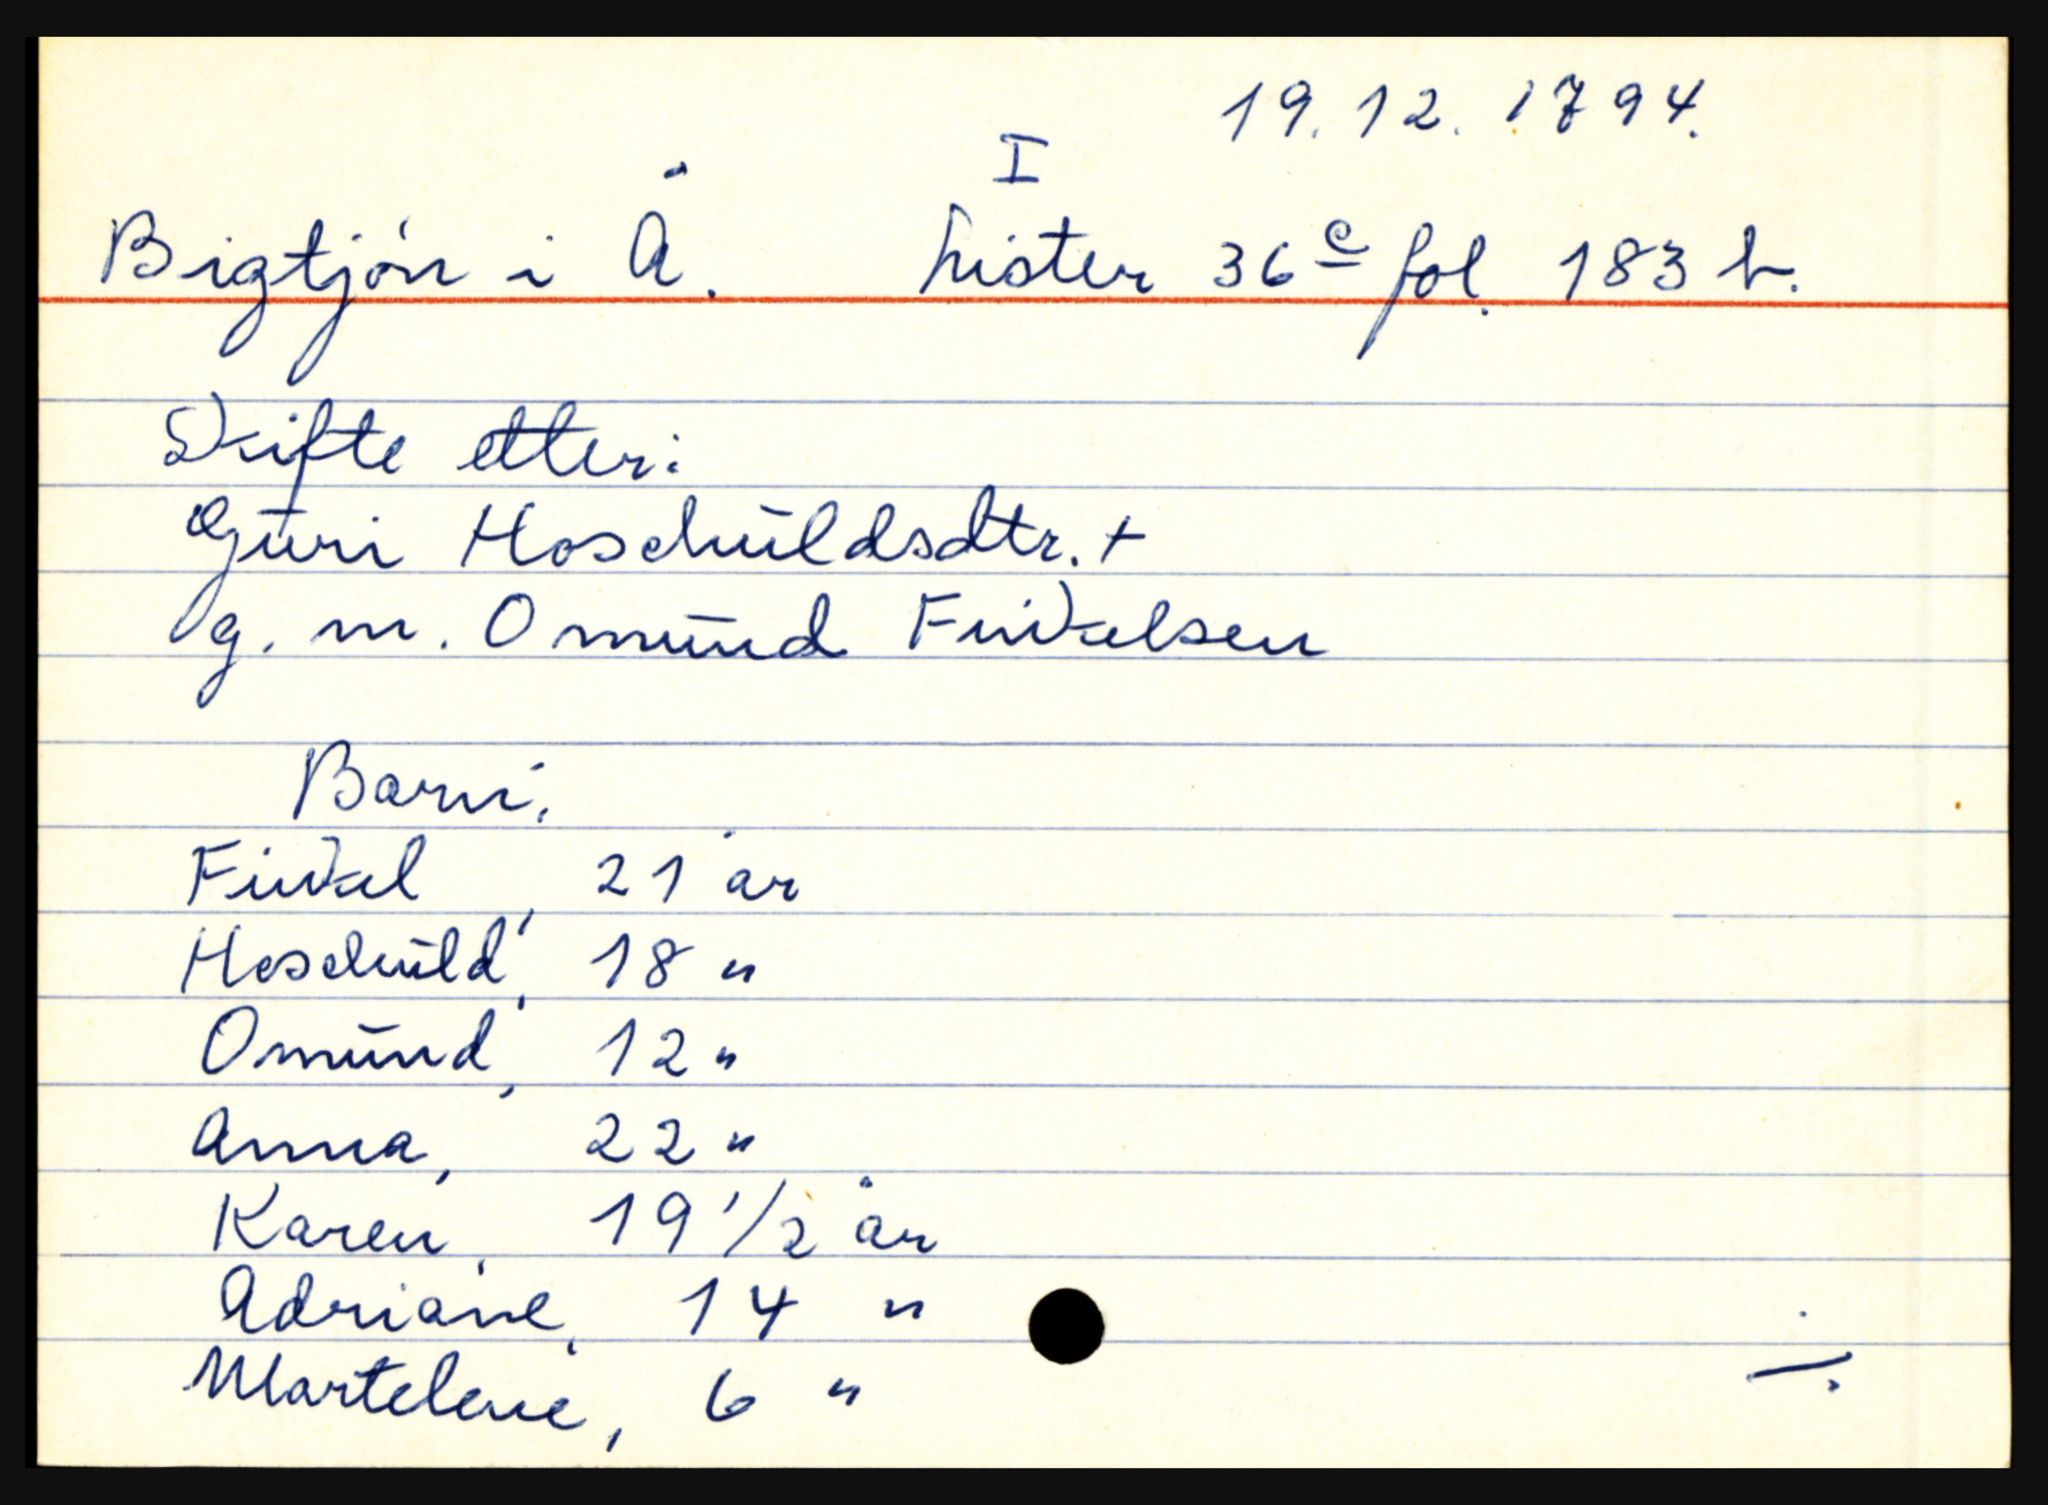 19.12.1794.
I
Bigtjón i Å. Lister 36c fol. 183 b.
Skifte etter:
Guri Hoschuldsdtr. +
g. m. Omund Finkelsen
Barn:
Finkel, 21 år
Hoschuld, 18 "
Omund, 12 "
Anna, 22 "
Karen, 19 1/2 år
Adriane, 14 "
Martelene, 6 "